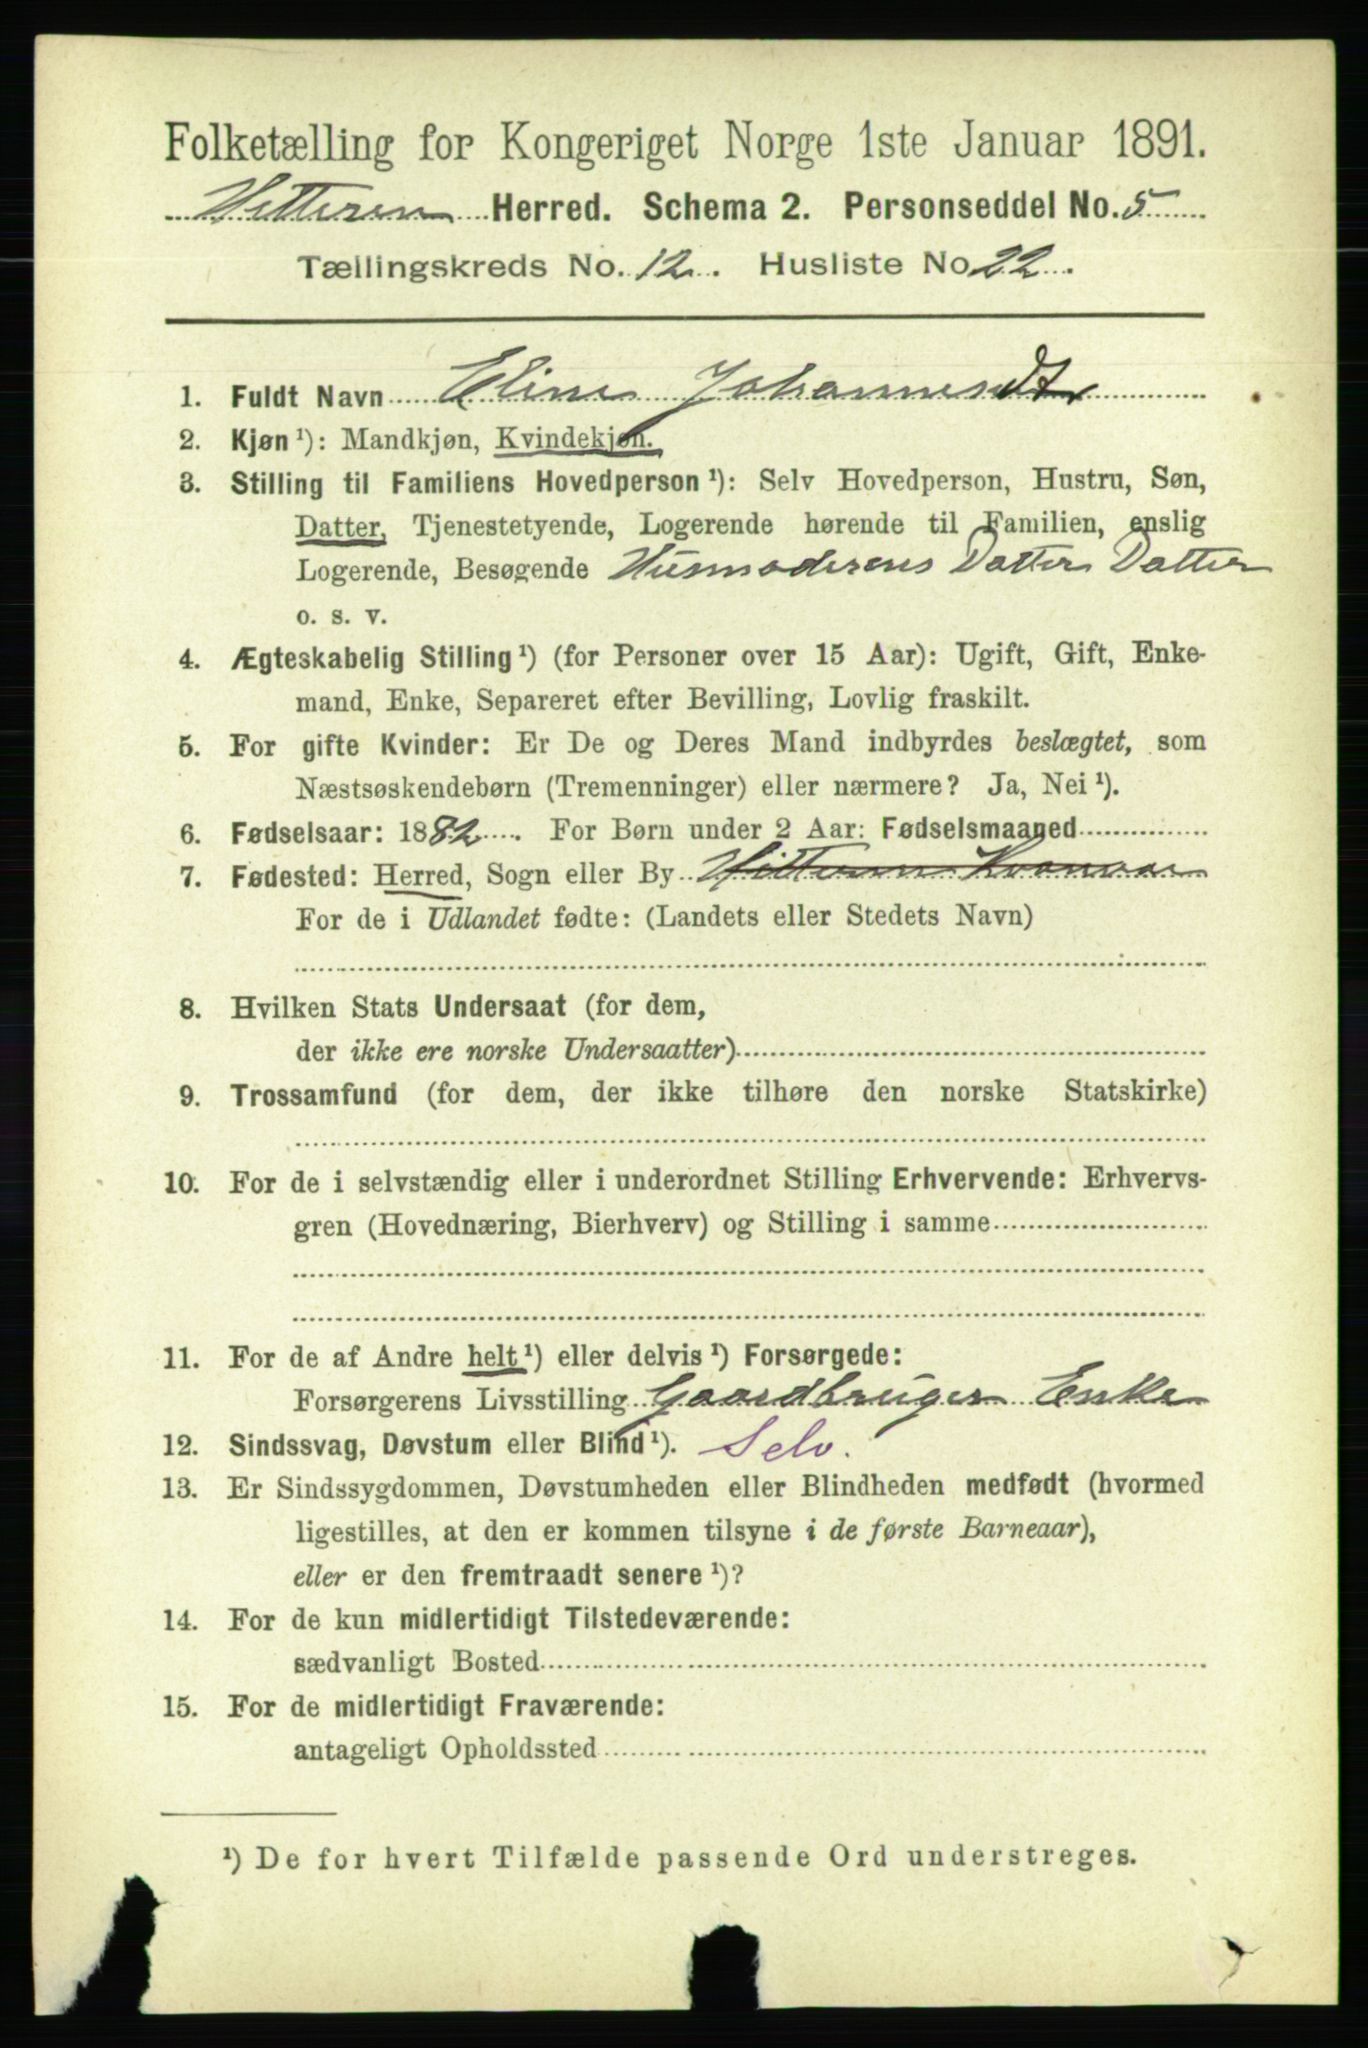 Folketælling for Kongeriget Norge 1ste Januar 1891.
Hitteren Herred. Schema 2. Personseddel No. 5
Tællingskreds No. 12. Husliste No 22.
1. Fuldt Navn Eline Johannesdtr
2. Kjøn ¹): Mandkjøn, Kvindekjøn.
3. Stilling til Familiens Hovedperson ¹): Selv Hovedperson, Hustru, Søn,
Datter, Tjenestetyende, Logerende hørende til Familien, enslig
Logerende, Besøgende Husmoderens Datters Datter
o. s. v.
4. Ægteskabelig Stilling ¹) (for Personer over 15 Aar): Ugift, Gift, Enke-
mand, Enke, Separeret efter Bevilling, Lovlig fraskilt.
5. For gifte Kvinder: Er De og Deres Mand indbyrdes beslægtet, som
Næstsøskendebørn (Tremenninger) eller nærmere? Ja, Nei ¹).
6. Fødselsaar: 1882. For Børn under 2 Aar: Fødselsmaaned
7. Fødested: Herred, Sogn eller By Hitteren
For de i Udlandet fødte: (Landets eller Stedets Navn)
8. Hvilken Stats Undersaat (for dem,
der ikke ere norske Undersaatter)
9. Trossamfund (for dem, der ikke tilhøre den norske Statskirke)
10. For de i selvstændig eller i underordnet Stilling Erhvervende: Erhvervs-
gren (Hovednæring, Bierhverv) og Stilling i samme
11. For de af Andre helt ¹) eller delvis ¹) Forsørgede:
Forsørgerens Livsstilling Gaardbruger Enke
12. Sindssvag, Døvstum eller Blind ¹). Selv.
13. Er Sindssygdommen, Døvstumheden eller Blindheden medfødt (hvormed
ligestilles, at den er kommen tilsyne i de første Barneaar),
eller er den fremtraadt senere ¹)?
14. For de kun midlertidigt Tilstedeværende:
sædvanligt Bosted
15. For de midlertidigt Fraværende:
antageligt Opholdssted
¹) De for hvert Tilfælde passende Ord understreges.